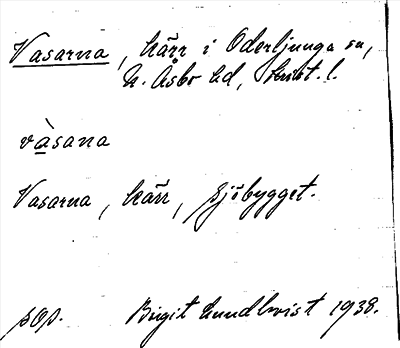 Vasarna, kärr i Oderljunga sn,
N. Åsbo hd, Krist. l.
vàsana
Vasarna, kärr, sjöbygget.
sop. Birgit Lundkvist 1938.